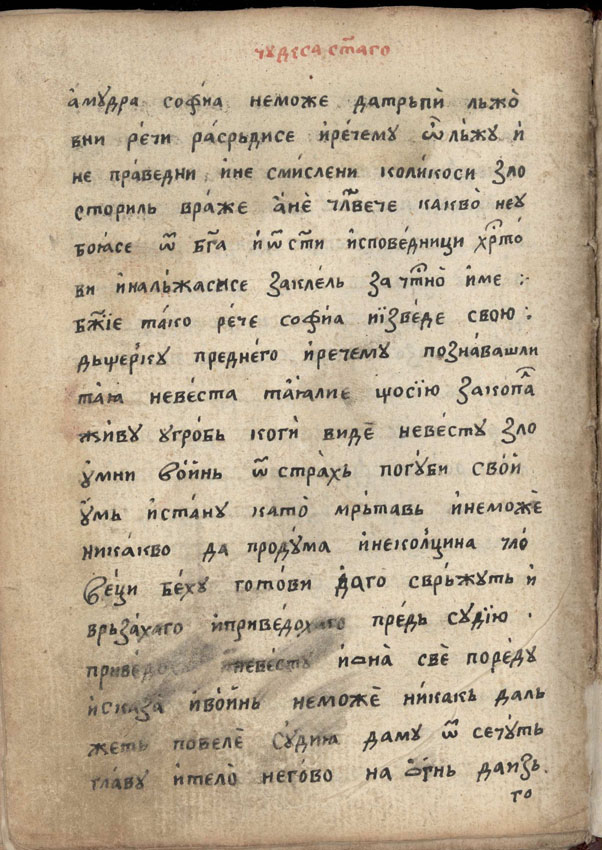 чꙋдеса ст҃аго
а҆мꙋ́дра софі́а неможе датрьпѝ льжо̀
вни ре́чи расрьдисе и҆ре́чемꙋ ѽ льжꙋ и҆
не пра́ведни и҆не сми́слени коли́коси ꙁло
сторилъ враже а҆нѐ чл҃вече каквѐ неꙋ
боꙗ́се ѿ бг҃а и҆ѿ ст҃и и҆спове́дници хрⷭ҇то
ви и҆налъжасисе ꙁакле́ль ꙁа чⷭ҇тно̀ и҆ме :·
бж҃їе та́ко ре́че софі́а иїꙁве́де свою :
дъще́рькꙋ пре́днего и҆речемꙋ поꙁна́вашли
та́ꙗ неве́ста та́ꙗлие щосїю ꙁакопа̀
живꙋ ꙋгробь когѝ видѐ неве́стꙋ ꙁло
ꙋ҆мни во́инь ѿ стра́хь погꙋ́би сво́и
ꙋ҆мь и҆ста́нꙋ като̀ мрьтавь и҆неможѐ
ника́кво да продꙋ́ма и҆неколцина чло
ве́ци бе́хꙋ гото́ви даго сврь́жꙋть и҆
врьꙁа́хаго и҆приве́дохаго предь сꙋдїю ·
приве́дохꙋ неве́стꙋ и҆ѻна̀ свѐ поре́дꙋ
и҆скаꙁа̀ и҆во́инь неможѐ ни́какь даль
жеть повелѐ сꙋдию дамꙋ ѿ сеꙋть
главꙋ и҆тело̀ него́во на о҆гнь даиꙁь.
го